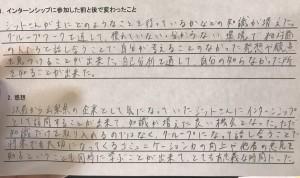 1. インターンシップに参加した前と後で変わったこと
ジットさんが主にどのような事を行っているかなどの知識が増えた。
グループワークを通して、慣れていない分からない環境で初対面
の人たちと話し合うことで自分が考えることのなかった発想や視点
を見つけることが出来た。自己分析を通して自分の知らなかった所
を知ることが出来た。
2. 感想
以前から山梨県の企業として気になっていたジットさんにインターンシップ
として訪問することが出来て知識が増えた良い機会となった。ただ
知識だけを取り入れるのではなく、グループになって話し合うことで
将来でも大切になってくるコミュニケーション力の向上や他者の意見を
知るということも同時に学ぶことが出来て、とても有意義な時間だった。